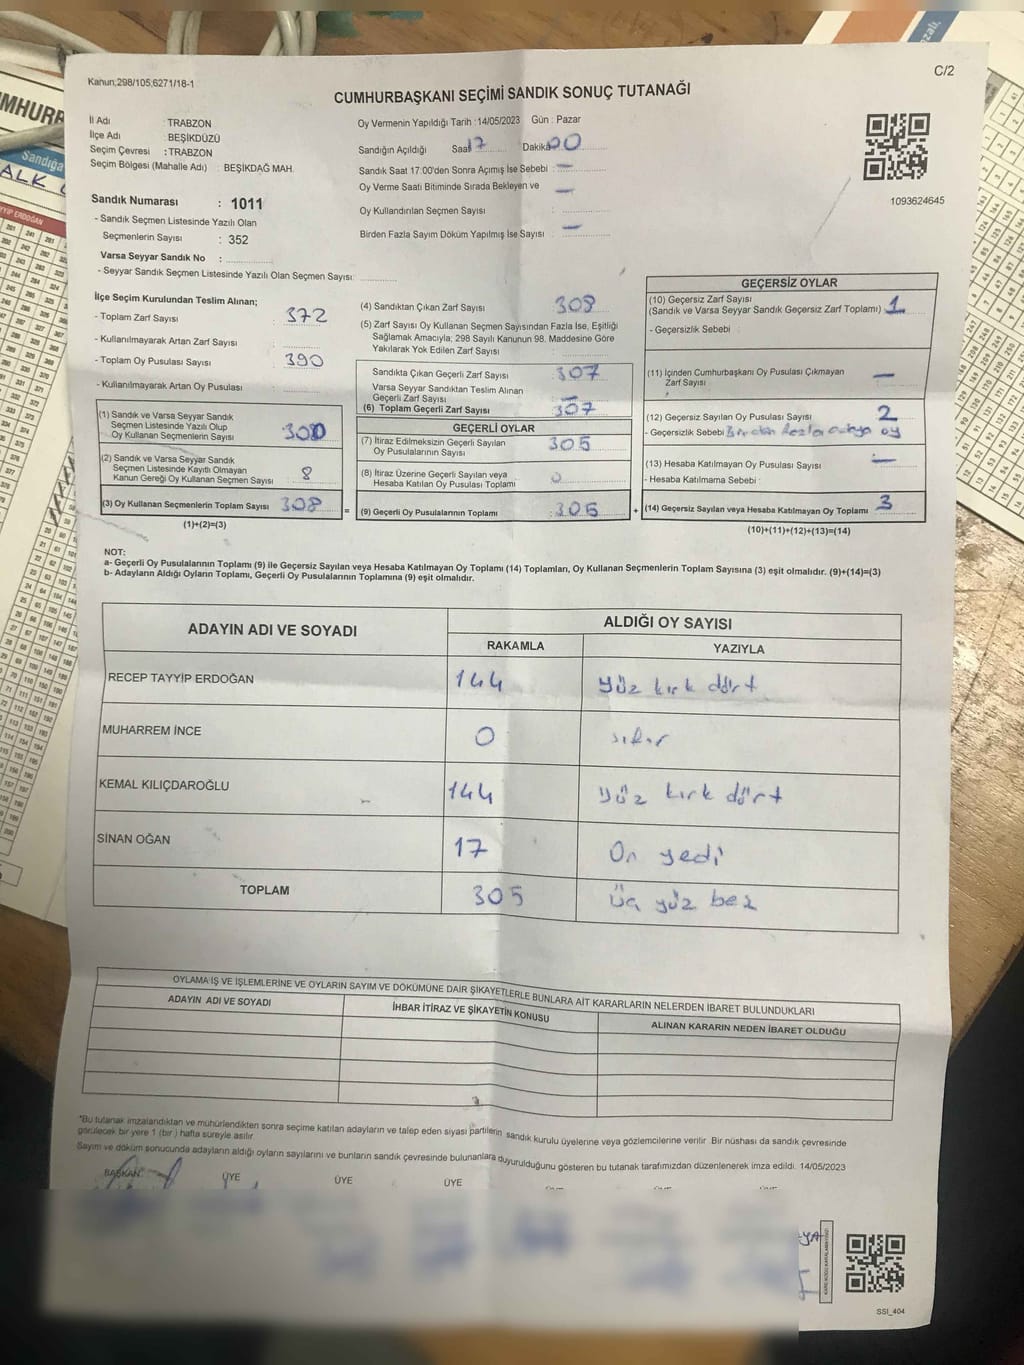 Kanun;298/105;6271/18-1
C/2
CUMHURBAŞKANI SEÇİMİ SANDIK SONUÇ TUTANAĞI
İl Adı : TRABZON
İlçe Adı : BEŞİKDÜZÜ
Seçim Çevresi : TRABZON
Seçim Bölgesi (Mahalle Adı) : BEŞİKDAĞ MAH.
Sandık Numarası : 1011
- Sandık Seçmen Listesinde Yazılı Olan
Seçmenlerin Sayısı : 352
Varsa Seyyar Sandık No :
- Seyyar Sandık Seçmen Listesinde Yazılı Olan Seçmen Sayısı:
Oy Vermenin Yapıldığı Tarih : 14/05/2023 Gün : Pazar
Sandığın Açıldığı Saat 17 Dakika 00
Sandık Saat 17:00'den Sonra Açımış İse Sebebi : —
Oy Verme Saati Bitiminde Sırada Bekleyen ve —
Oy Kullandırılan Seçmen Sayısı :
Birden Fazla Sayım Döküm Yapılmış İse Sayısı : —
1093624645
İlçe Seçim Kurulundan Teslim Alınan;
- Toplam Zarf Sayısı : 372
- Kullanılmayarak Artan Zarf Sayısı :
- Toplam Oy Pusulası Sayısı : 390
- Kullanılmayarak Artan Oy Pusulası :
(1) Sandık ve Varsa Seyyar Sandık
Seçmen Listesinde Yazılı Olup
Oy Kullanan Seçmenlerin Sayısı :
(2) Sandık ve Varsa Seyyar Sandık
Seçmen Listesinde Kayıtlı Olmayan
Kanun Gereği Oy Kullanan Seçmen Sayısı : 8
(3) Oy Kullanan Seçmenlerin Toplam Sayısı : 308 =
(1)+(2)=(3)
(4) Sandıktan Çıkan Zarf Sayısı : 308
(5) Zarf Sayısı Oy Kullanan Seçmen Sayısından Fazla İse, Eşitliği
Sağlamak Amacıyla; 298 Sayılı Kanunun 98. Maddesine Göre
Yakılarak Yok Edilen Zarf Sayısı :
Sandıkta Çıkan Geçerli Zarf Sayısı : 307
Varsa Seyyar Sandıktan Teslim Alınan
Geçerli Zarf Sayısı : —
(6) Toplam Geçerli Zarf Sayısı : 307
GEÇERLİ OYLAR
(7) İtiraz Edilmeksizin Geçerli Sayılan
Oy Pusulalarının Sayısı : 305
(8) İtiraz Üzerine Geçerli Sayılan veya
Hesaba Katılan Oy Pusulası Toplamı : 0
(9) Geçerli Oy Pusulalarının Toplamı : 305 +
GEÇERSİZ OYLAR
(10) Geçersiz Zarf Sayısı
(Sandık ve Varsa Seyyar Sandık Geçersiz Zarf Toplamı) : 1
- Geçersizlik Sebebi :
(11) İçinden Cumhurbaşkanı Oy Pusulası Çıkmayan
Zarf Sayısı : —
(12) Geçersiz Sayılan Oy Pusulası Sayısı : 2
- Geçersizlik Sebebi : Birden fazla adaya oy
(13) Hesaba Katılmayan Oy Pusulası Sayısı : —
- Hesaba Katılmama Sebebi :
(14) Geçersiz Sayılan veya Hesaba Katılmayan Oy Toplamı : 3
(10)+(11)+(12)+(13)=(14)
NOT:
a- Geçerli Oy Pusulalarının Toplamı (9) ile Geçersiz Sayılan veya Hesaba Katılmayan Oy Toplamı (14) Toplamları, Oy Kullanan Seçmenlerin Toplam Sayısına (3) eşit olmalıdır. (9)+(14)=(3)
b- Adayların Aldığı Oyların Toplamı, Geçerli Oy Pusulalarının Toplamına (9) eşit olmalıdır.
ADAYIN ADI VE SOYADI ALDIĞI OY SAYISI
RAKAMLA YAZIYLA
RECEP TAYYİP ERDOĞAN 144 yüz kırk dört
MUHARREM İNCE 0 sıfır
KEMAL KILIÇDAROĞLU 144 yüz kırk dört
SİNAN OĞAN 17 On yedi
TOPLAM 305 Üç yüz beş
OYLAMA İŞ VE İŞLEMLERİNE VE OYLARIN SAYIM VE DÖKÜMÜNE DAİR ŞİKAYETLERLE BUNLARA AİT KARARLARIN NELERDEN İBARET BULUNDUKLARI
ADAYIN ADI VE SOYADI İHBAR İTİRAZ VE ŞİKAYETİN KONUSU ALINAN KARARIN NEDEN İBARET OLDUĞU
*Bu tutanak imzalandıktan ve mühürlendikten sonra seçime katılan adayların ve talep eden siyasi partilerin sandık kurulu üyelerine veya gözlemcilerine verilir. Bir nüshası da sandık çevresinde
görülecek bir yere 1 (bir ) hafta süreyle asılır.
Sayım ve döküm sonucunda adayların aldığı oyların sayılarını ve bunların sandık çevresinde bulunanlara duyurulduğunu gösteren bu tutanak tarafımızdan düzenlenerek imza edildi. 14/05/2023
BAŞKAN ÜYE ÜYE ÜYE
SSI_404